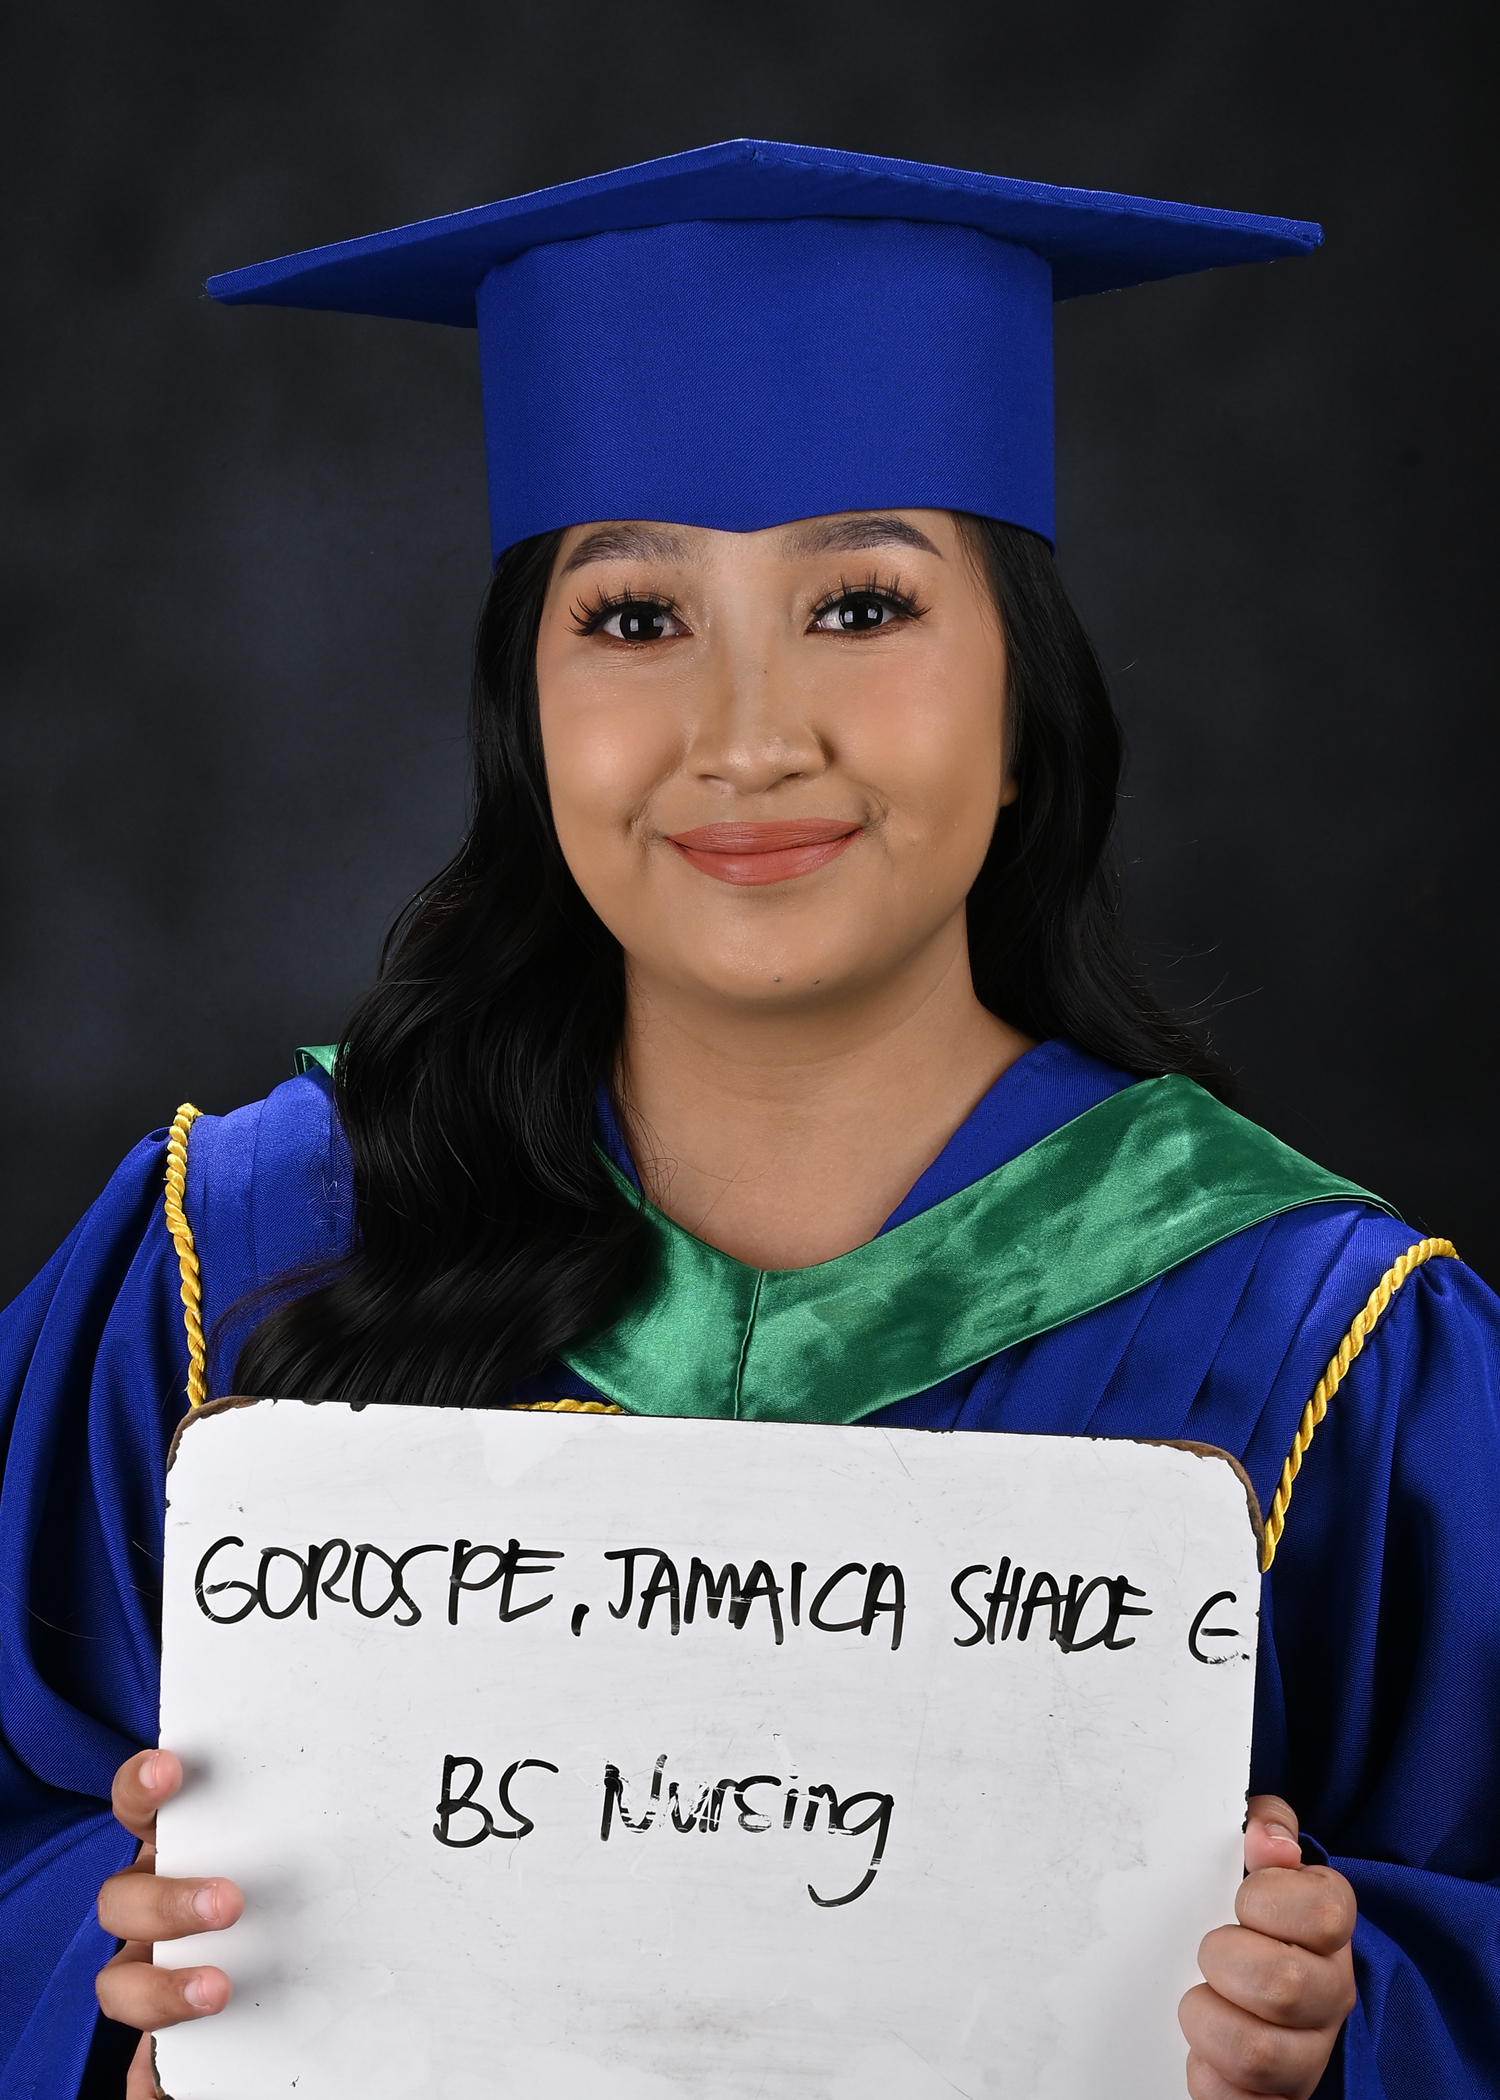 GOROSPE, JAMAICA SHADE G.
BS Nursing